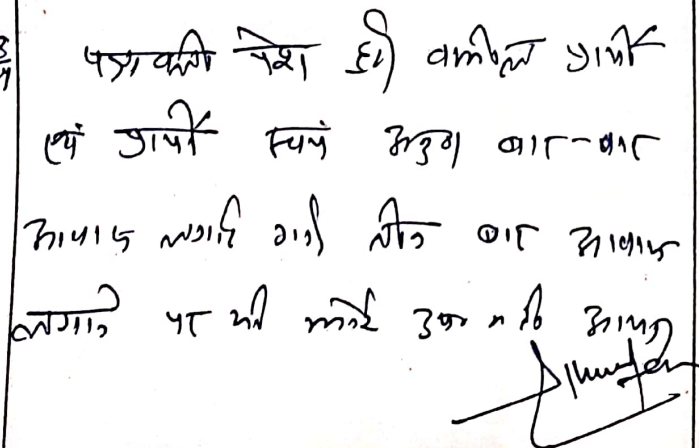 पत्रावली पेश हुई वकील प्रार्थी
एवं प्रार्थी स्वयं अनु० बार-बार
आवाज लगाई गई तीन बार आवाज
लगाने पर भी कोई उप० नहीं आया